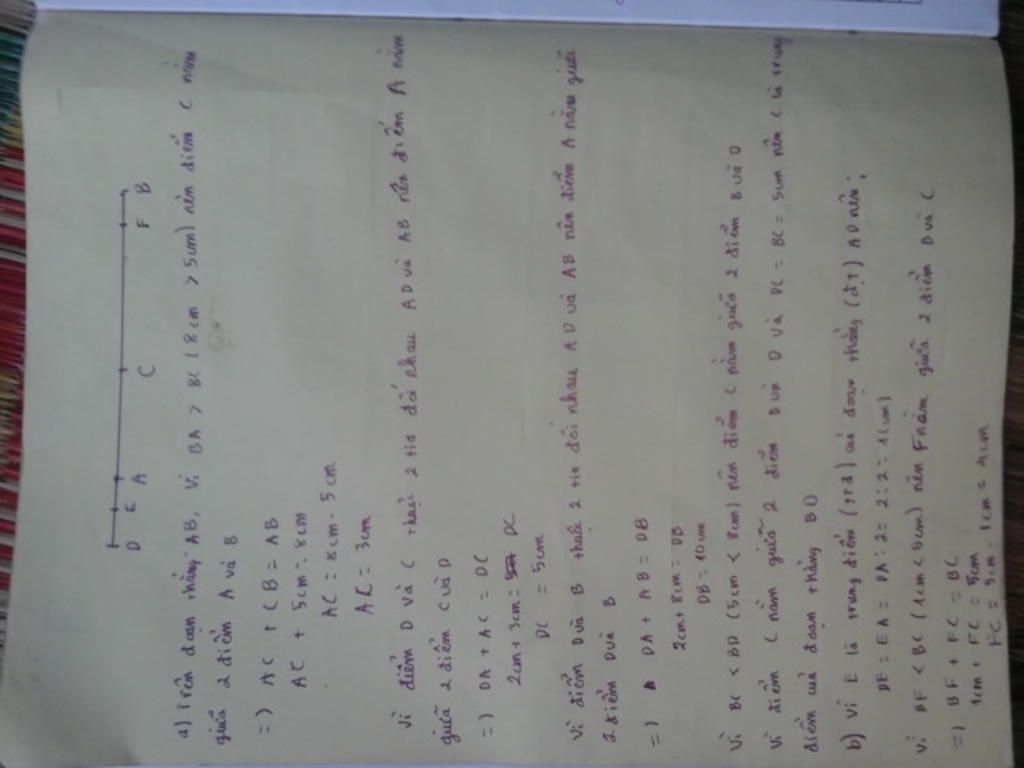 D E A C F B
a) Trên đoạn thẳng AB, vì BA > BC (8cm > 5cm) nên điểm C nằm
giữa 2 điểm A và B
=) AC + CB = AB
AC + 5cm = 8cm
AC = 8cm - 5cm
AC = 3cm
Vì điểm D và C thuộc 2 tia đối nhau AD và AB nên điểm A nằm
giữa 2 điểm C và D
=) DA + AC = DC
2cm + 3cm = DC
DC = 5cm
Vì điểm D và B thuộc 2 tia đối nhau AD và AB nên điểm A nằm giữa
2 điểm D và B
=) DA + AB = DB
2cm + 8cm = DB
DB = 10cm
Vì BC < BD (5cm < 8cm) nên điểm C nằm giữa 2 điểm B và D
Vì điểm C nằm giữa 2 điểm B và D và DC = BC = 5cm nên C là trung
điểm của đoạn thẳng BD
b) Vì E là trung điểm (trđ) của đoạn thẳng (đ,t) AD nên;
DE = EA = DA : 2 = 2 : 2 = 1(cm)
Vì BF < BC (1cm < 5cm) nên F nằm giữa 2 điểm B và C
=) BF + FC = BC
1cm + FC = 5cm
FC = 5cm - 1cm = 4cm